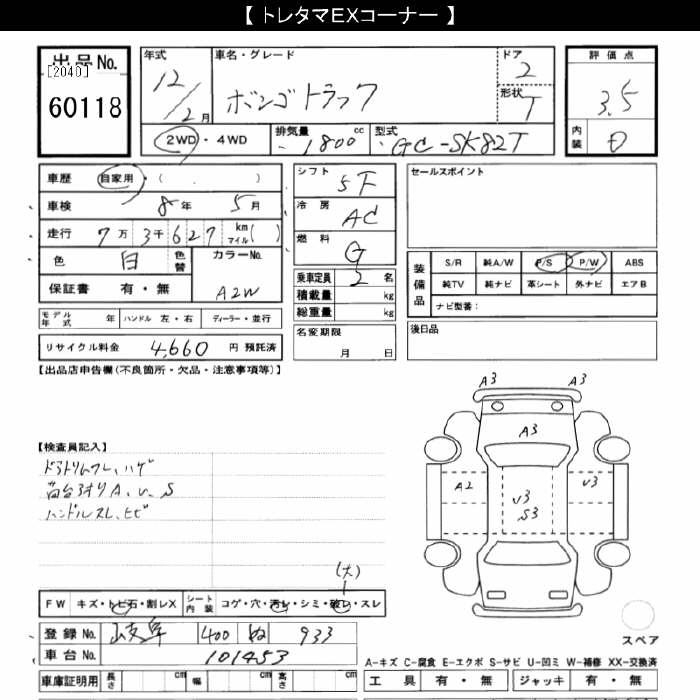 【 トレタマEXコーナー 】
出品No.
[2040]
60118
年式
12/2月
車名・グレード
ボンゴトラック
ドア
2
形状
T
評価点
3.5
内装
D
2WD・4WD
排気量
1800cc
型式
GC-SK82T
車歴 自家用・( )
車検 8年 5月
走行 7万3千627 km マイル( )
色 白 色替
カラーNo.
A2W
保証書 有・無
モデル年式 年 ハンドル 左・右 ディーラー・並行
リサイクル料金 4,660 円 預託済
シフト
5F
冷房
AC
燃料
G
乗車定員 2名
積載量 kg
総重量 kg
名変期限
月 日
セールスポイント
装備品
S/R 純A/W P/S P/W ABS
純TV 純ナビ 革シート 外ナビ エアB
ナビ型番：
後日品
【出品店申告欄(不良箇所・欠品・注意事項等)】
【検査員記入】
ハンドルスレ、ヒビ
A3 A3
A3
A2
V3
S3
V3
(大)
FW キズ・トビ石・割レX シート内装 コゲ・穴・汚レ・シミ・破レ・スレ
登録No. 岐阜 400 ぬ 933
車台No. 101453
車庫証明用 長さ cm 幅 cm 高さ cm
スペア
A-キズ C-腐食 E-エクボ S-サビ U-凹ミ W-補修 XX-交換済
工具 有・無 ジャッキ 有・無